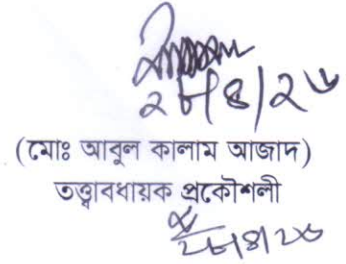 ২৮/৪/২৬
(মোঃ আবুল কালাম আজাদ)
তত্ত্বাবধায়ক প্রকৌশলী
২৮/৪/২৬